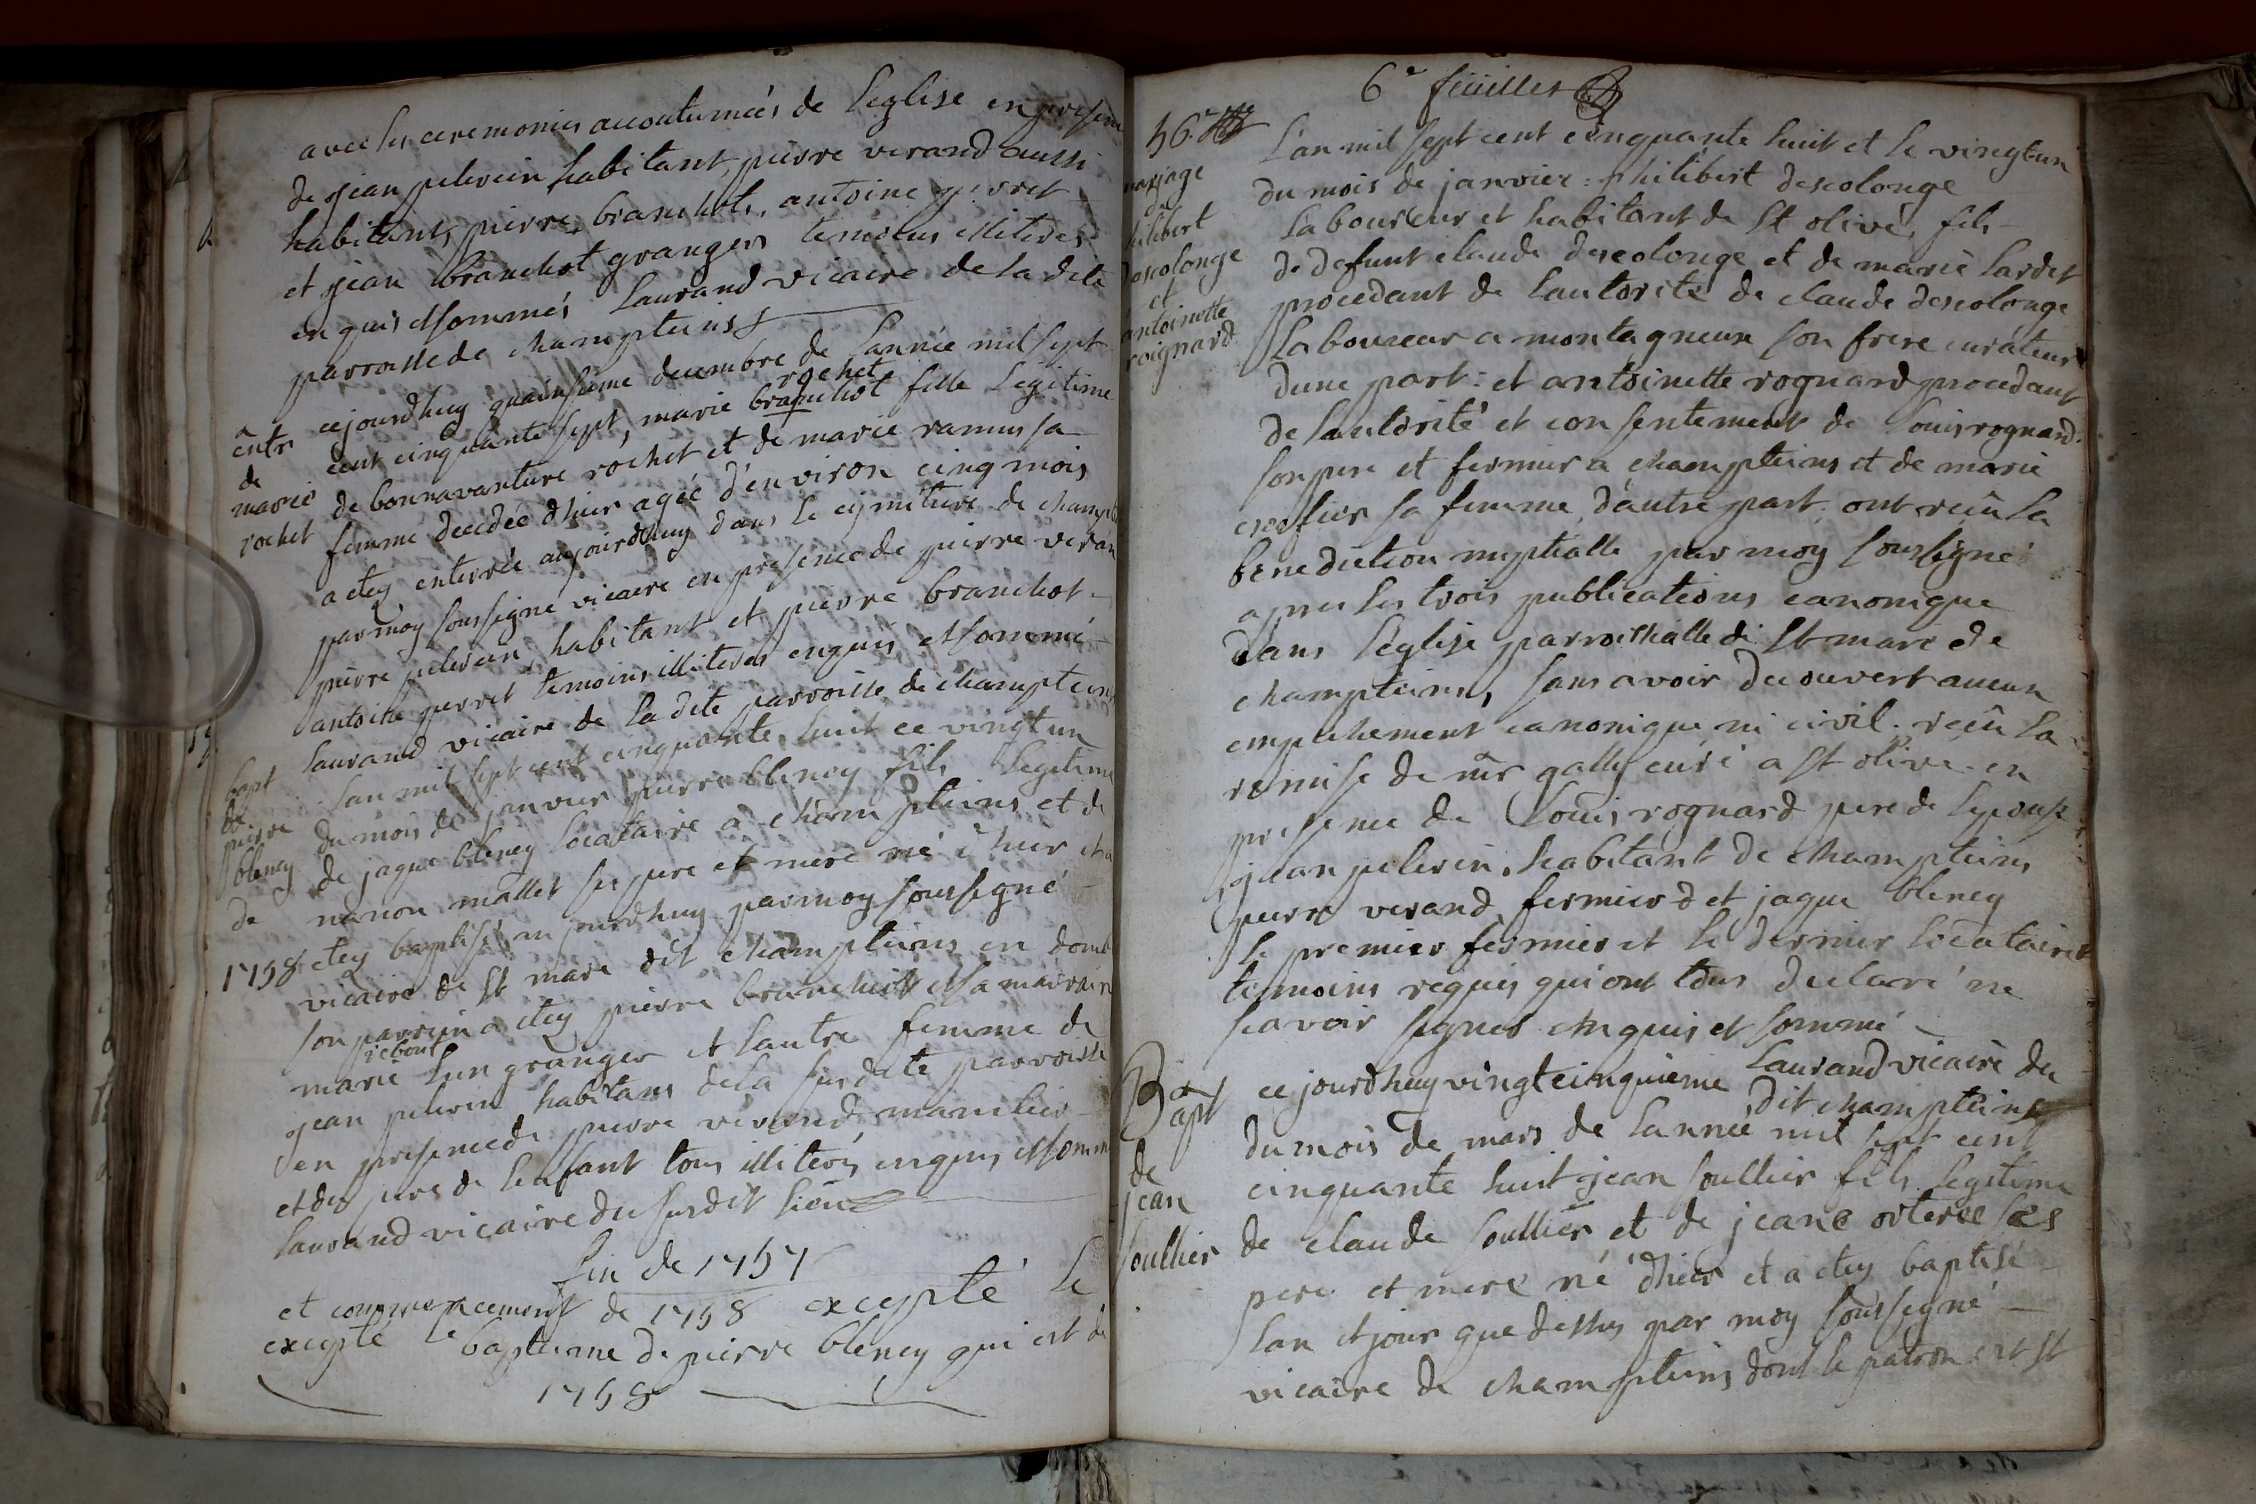 avec les ceremonies accoutumées de l'eglise en presence
de jean pelerin habitant, pierre verand aussi
habitant, pierre branchot, antoine perret
et jean branchot grangers temoins illiteres
enquis et sommés Laurand vicaire de la dite
parroisse de champteins
entr
de
marie
rochet
cejourdhuy quinsieme decembre de l'année mil sept
cent cinquante sept, marie branchot rochet fille legitime
de bonnavanture rochet et de marie ramus sa
femme decedée dhier agée d'environ cinq mois
a etey enterrée aujourdhuy dans le cymitiere de champt
par moy soussigné vicaire en presence de pierre veran
pierre pelerin, habitant et pierre branchot
antoine perret temoins illiteres enquis et sommé
Laurand vicaire de la dite parroisse de champteins
bapt
de
pierre
bleney
de
1758
lan mil sept cent cinquante huit ce vingt un
du mois de janvier pierre bleney fils legitime
de jaque bleney locataire a champteins et de
nanon mallet ses pere et mere né d'hier et a
etey baptisé aujourdhuy par moy soussigné
vicaire de st marc dit champteins en dombe
son parrein a etey pierre branchot et sa marraine
marie rebout lun granger et lautre femme de
jean pelerin habitans de la susdite parroisse
en presence de pierre verand manilier
et du pere de lenfant tous illiterés enquis et somm
Laurand vicaire du susdit lieu
fin de 1757
et commencement de 1758 excepté le
excepté le bapteme de pierre bleney qui est de
1758
6e feüilles
56e
mariage
de
hilibert
descolonge
et
antoinette
roignard
L'an mil sept cent cinquante huit et le vingtun
du mois de janvier : philibert descolonge
laboureur et habitant de st olive, fils
de defunt claude descolonge et de marie lardet
procedant de lautorité de claude descolonge
laboureur a montagneux son frere curateur
dune part : et antoinette rognard procedant
de lautorité et consentement de louis rognard
son pere et fermier a champteins et de marie
sa femme, d'autre part. ont reçû la
benediction nuptialle par moy soussigné
apres les trois publications canonique
dans l'eglise parroissialle de st marc de
champteins, sans avoir decouvert aucun
empechement canonique ni civil. reçû la
remise de mr gally curé a st olive. en
presence de louis rognard pere de lepouse
jean pelerin, habitant de champteins
pierre verand fermier et jaque bleney
le premier fermier et le dernier locataire
temoins requis qui ont tous declaré ne
scavoir signer enquis et sommé
Laurand vicaire du
dit champteins
Bapt
de
jean
soullier
ce jourdhuy vingtcinquieme
du mois de mars de lannée mil sept cent
cinquante huit jean soullier fils legitime
de claude soullier et de jeane ses
pere et mere né dhier et a etey baptisé
lan et jour que dessus par moy soussigné
vicaire de champteins dont le patron est st